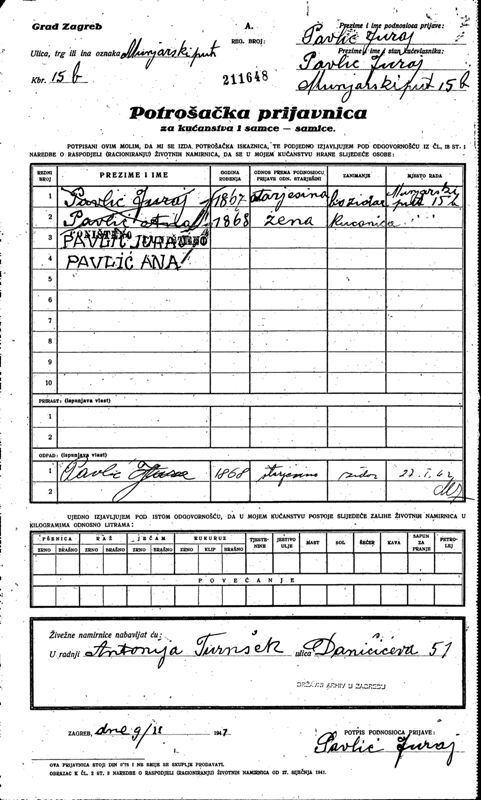 Grad Zagreb
A.
REG. BROJ:
211648
Prezime i ime podnosioca prijave:
Pavlić Juraj
Ulica, trg ili ina oznaka Munjarski put
Kbr. 15 b
Prezime i ime stan. kućevlasnika:
Pavlić Juraj
Munjarski put 15 b
Potrošačka prijavnica
za kućanstva i samce — samice.
POTPISANI OVIM MOLIM, DA MI SE IZDA POTROŠAČKA ISKAZNICA, TE PODJEDNO IZJAVLJUJEM POD ODGOVORNOŠĆU IZ ČL. 18 ST. 1
NAREDBE O RASPODJELI (RACIONIRANJU) ŽIVOTNIH NAMIRNICA, DA SE U MOJEM KUĆANSTVU HRANE SLIJEDEĆE OSOBE:
REDNI BROJ PREZIME I IME GODINA ROĐENJA ODNOS PREMA PODNOSIOCU PRIJAVE ODN. STARJEŠINI ZANIMANJE MJESTO RADA
1 Pavlić Juraj 1867 starješina Munjarski put 15 b
2 Pavlić 1868 žena kućanica
3 PONIŠTENO PAVLIĆ JURAJ
4 PAVLIĆ ANA
5
6
7
8
9
10
PRIRAST: (ispunjava vlast)
1
2
OTPAD: (ispunjava vlast)
1 Pavlić 1868
2
UJEDNO IZJAVLJUJEM POD ISTOM ODGOVORNOŠĆU, DA U MOJEM KUĆANSTVU POSTOJE SLIJEDEĆE ZALIHE ŽIVOTNIH NAMIRNICA U
KILOGRAMIMA ODNOSNO LITRAMA:
PŠENICA RAŽ JEČAM KUKURUZ TJESTENINE JESTIVO ULJE MAST SOL ŠEĆER KAVA SAPUN ZA PRANJE PETROLEJ
ZRNO BRAŠNO ZRNO BRAŠNO ZRNO BRAŠNO ZRNO KLIP BRAŠNO
POVEĆANJE
Živežne namirnice nabavljat ću:
U radnji Antonija Turnšek ulica Daničićeva 51
DRŽAVNI ARHIV U ZAGREBU
ZAGREB, dne 9/II 194
POTPIS PODNOSIOCA PRIJAVE:
Pavlić Juraj
OVA PRIJAVNICA STOJI DIN 0'75 I NE SMIJE SE SKUPLJE PRODAVATI.
OBRAZAC K ČL. 2 ST. 2 NAREDBE O RASPODJELI (RACIONIRANJU) ŽIVOTNIH NAMIRNICA OD 27. SIJEČNJA 1941.